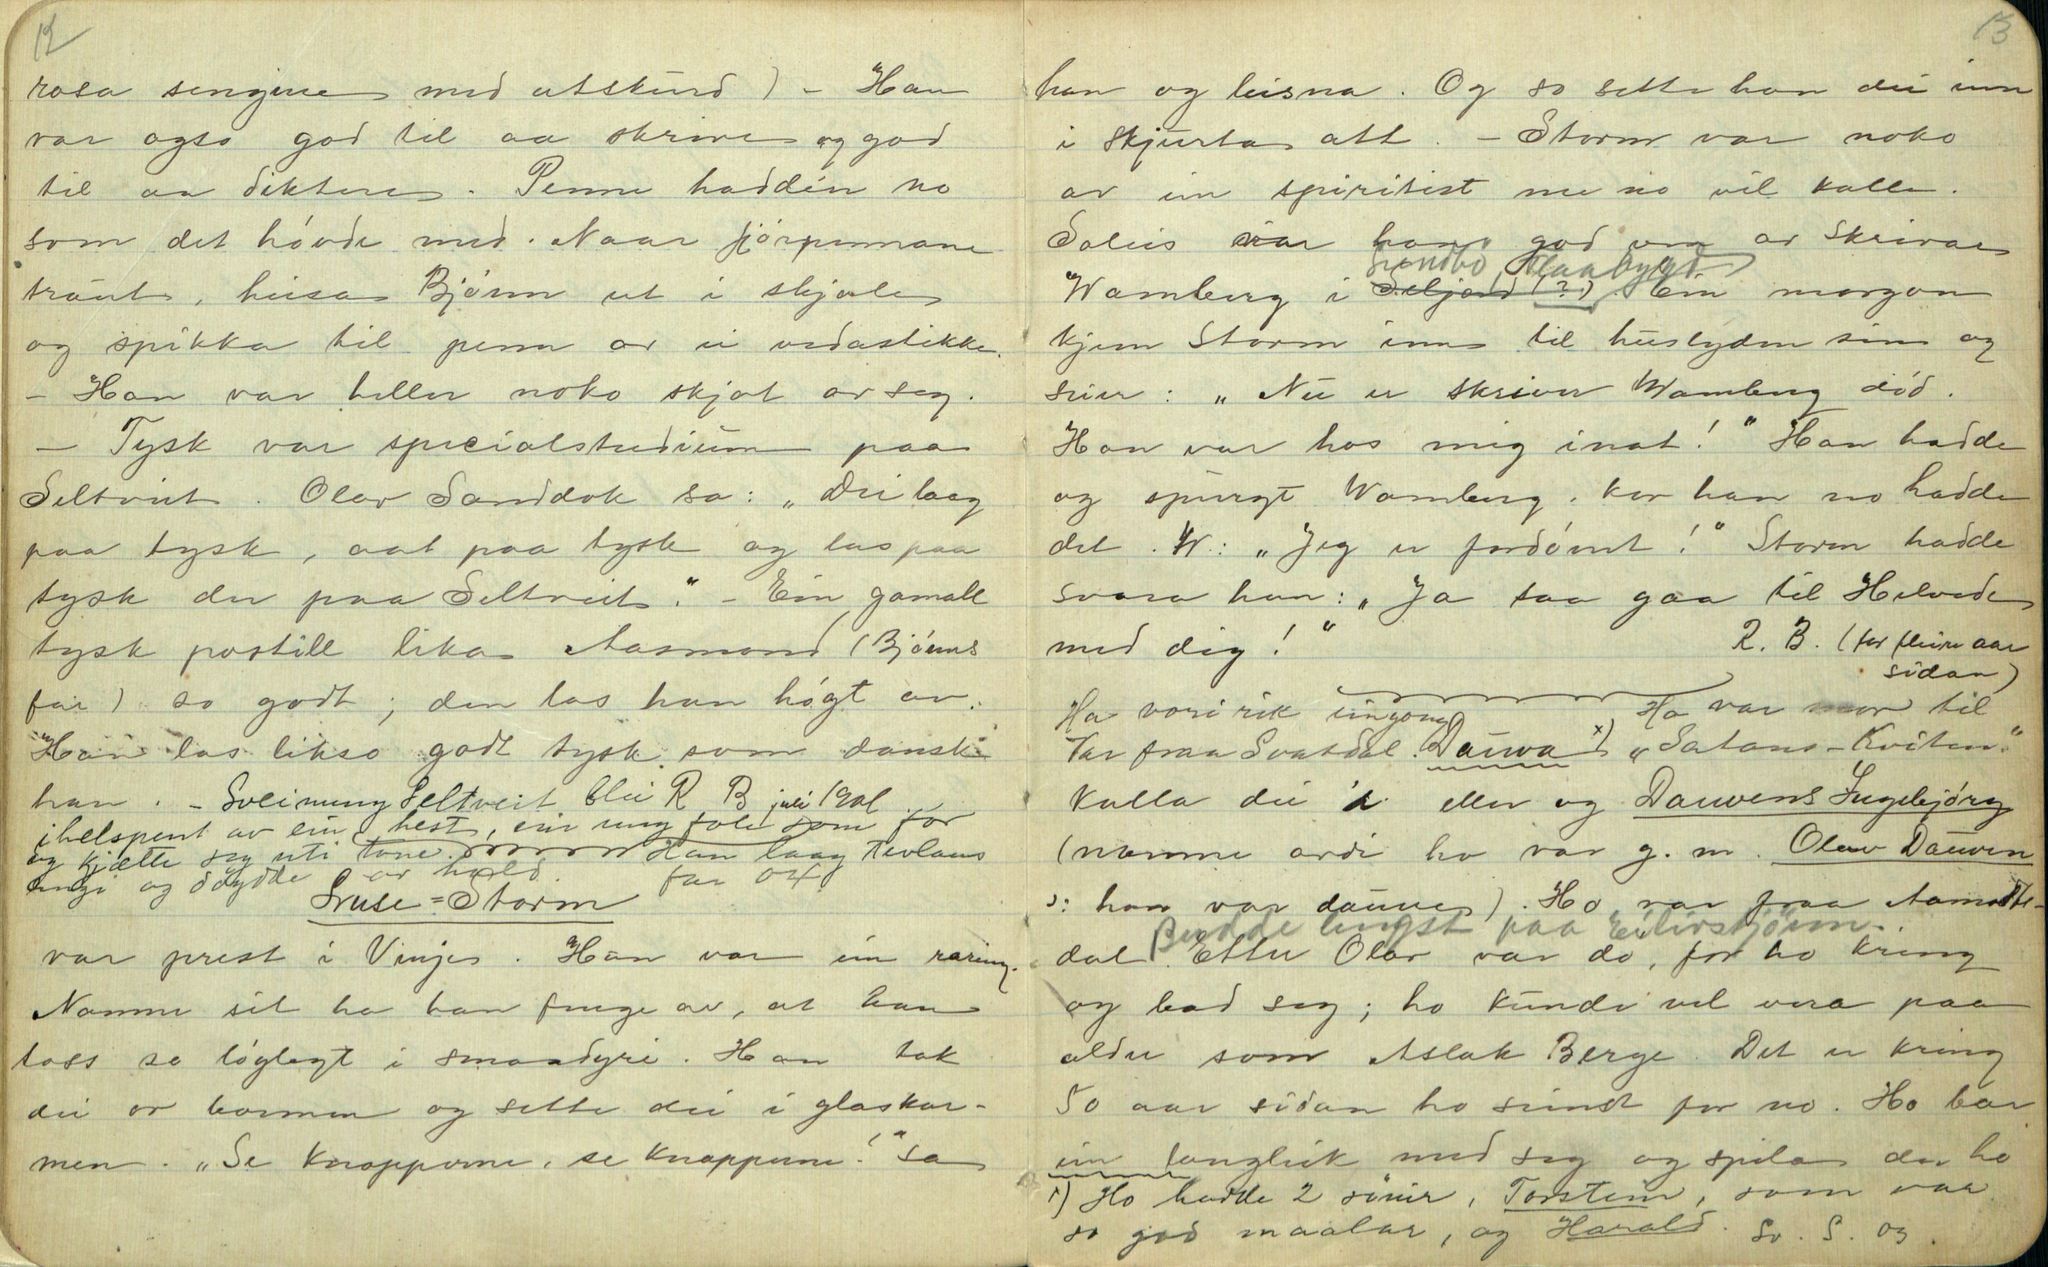 12
rosa sengine med utskurd) - Han
var ogso god til aa skrive og god
til aa diktere. Penne hadden no
som det hövde med. Naar fjörpennane
traut, heisa Bjönn ut i skjole
og spikka til penn av ei vedastikke.
- Han var heller noko skjot av seg.
- Tysk var specialstudium paa
Seltveit. Olav Sanddok sa: „Dei laag
paa tysk, aat paa tysk og las paa
tysk der paa Seltveit." - Ein gamall
tysk postill lika Aasmond (Bjönns
far) so godt; den las han högt av.
Han las likso godt tysk som dansk
han. - Sveinung Seltveit blei R B juli 1901
ihelspent av ein hest, ein ung fole som for
og kjætte seg uti tone. Han laag
og döydde av hald. far
Sruse = Storm
var prest i Vinje. Han var ein raring.
Namne sit ha han fenge av, at han
tass so löglegt i smaadyri. Han tok
dei or barmen og sette dei i glaskar-
men. „Se Knapperne, se Knapperne!" sa
13
han og leisna. Og so sette han dei inn
i skjurta att. - Storm var noko
av ein spiritist me no vil kalle.
Soleis var han god ven av skrivar
Sundbo, Flaabygd
Wamberg i Seljord (?). Ein morgon
kjem Storm inn til huslyden sin og
seier: „Nu er skriver Wamberg död.
Han var hos mig inat!" Han hadde
og spurgt Wamberg, kor han no hadde
det. W.: „Jeg er fordömt!" Storm hadde
svara han: „Ja saa gaa til Helvede
med dig!" R. B. (for fleire aar
sidan)
Ha vori rik eingong Ho var mor til
Var fraa Svatdal. Dauva x) „Satans-Kviten."
Kalla dei 'a eller og Dauvens Ingebjörg
(namne ardi ho var g. m. Olav Dauven
ɔ: han var dauve). Ho var fraa Aamotts-
Budde lengst paa Eilivstjönn.
dal. Etter Olav var do, for ho kring
og bad seg; ho kunde vel vera paa
alder som Aslak Berge. Det er kring
50 aar sidan ho svint for no. Ho bar
ein langleik med seg og spila der ho
x) Ho hadde 2 söner, Torstein, som var
so god maalar, og Harald. Sv. S. og.